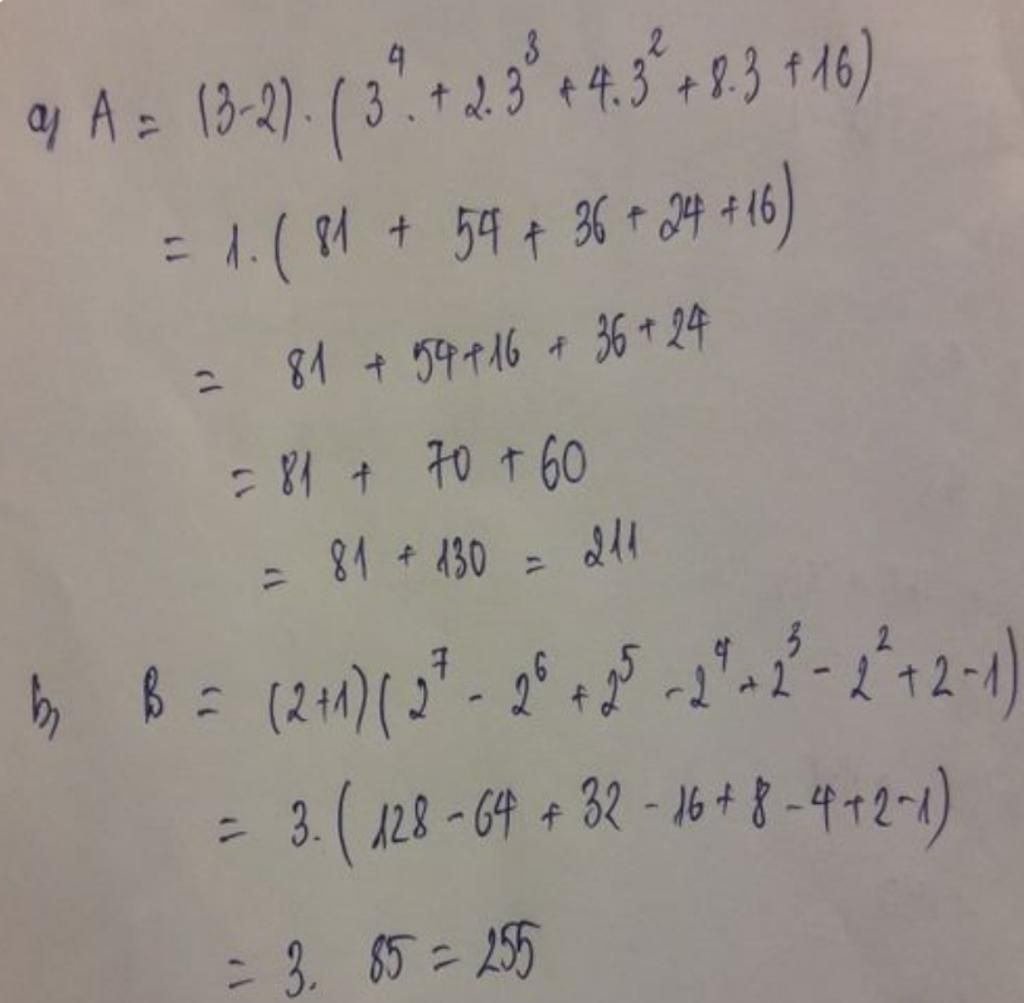 a) A = (3-2). (3⁴. + 2.3³ + 4.3² + 8.3 + 16)
= 1. ( 81 + 54 + 36 + 24 +16)
= 81 + 54+16 + 36+24
= 81 + 70 + 60
= 81 + 130 = 211
b, B = (2+1)( 2⁷ - 2⁶ + 2⁵ - 2⁴ + 2³ - 2² + 2 - 1)
= 3. ( 128 - 64 + 32 - 16 + 8 - 4 + 2 - 1)
= 3. 85 = 255